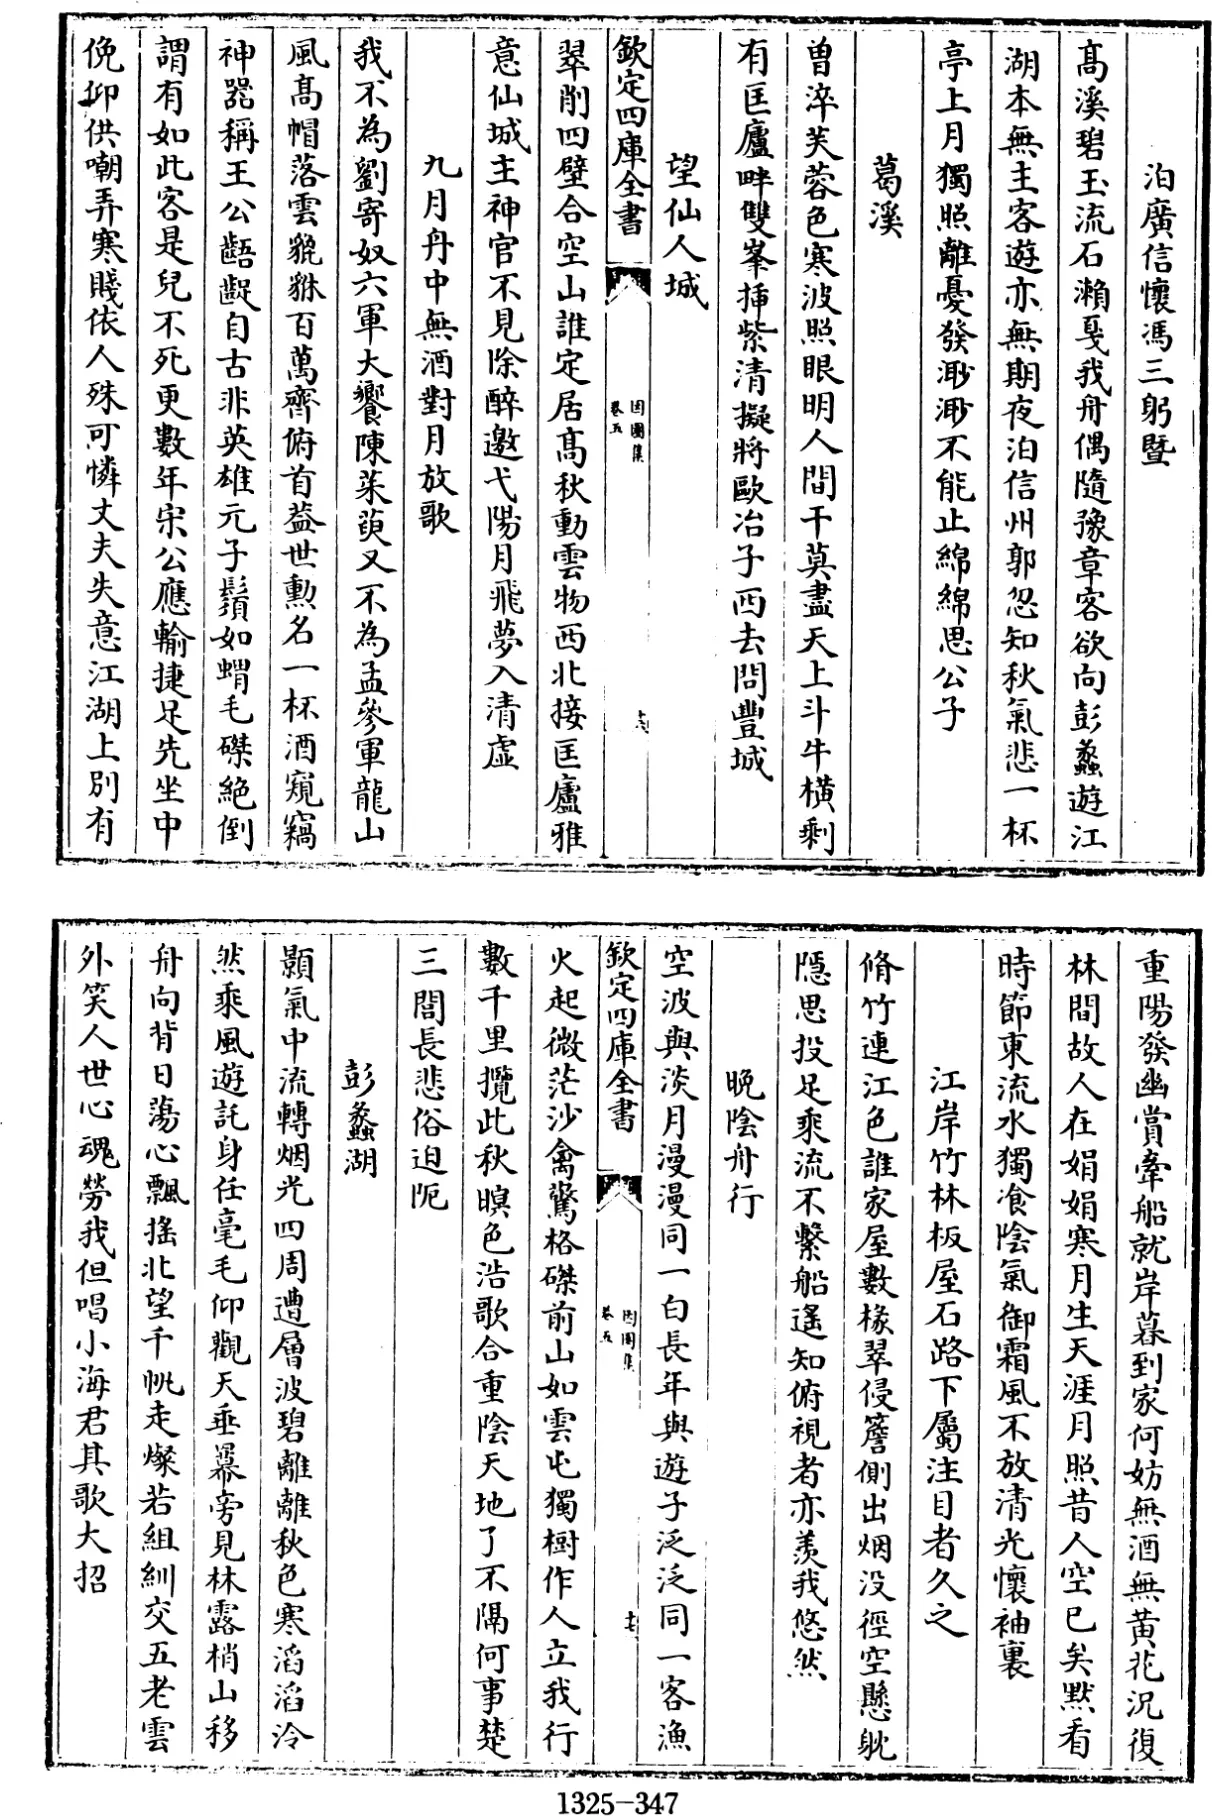 泊廣信懷馮三躬暨
高溪碧玉流石瀨戛我舟偶隨豫章客欲向彭蠡遊江
湖本無主客遊亦無期夜泊信州郭忽知秋氣悲一杯
亭上月獨照離憂發渺渺不能止綿綿思公子
葛溪
曽淬芙蓉色寒波照眼明人間干莫盡天上斗牛横剩
有匡廬畔雙峯揷紫清擬將歐冶子西去問豐城
望仙人城
欽定四庫全書
因園集
卷五
十六
翠削四壁合空山誰定居髙秋動雲物西北接匡廬雅
意仙城主神官不見除醉邀弋陽月飛夢入清虛
九月舟中無酒對月放歌
我不為劉寄奴六軍大饗陳茱萸又不為孟參軍龍山
風髙帽落雲貔貅百萬齊俯首葢世勲名一杯酒窺竊
神器稱王公齬齪自古非英雄元子鬚如蝟毛磔絶倒
謂有如此客是兒不死更數年宋公應輸捷足先坐中
俛仰供嘲弄寒賤依人殊可憐丈夫失意江湖上别有
重陽發幽賞牽船就岸暮到家何妨無酒無黄花況復
林間故人在娟娟寒月生天涯月照昔人空已矣黙看
時節東流水獨飡陰氣御霜風不放清光懷袖裏
江岸竹林板屋石路下屬注目者久之
脩竹連江色誰家屋數椽翠侵簷側出烟没徑空懸躭
隠思投足乘流不繫船遙知俯視者亦羡我悠然
晚陰舟行
空波與淡月漫漫同一白長年與遊子泛泛同一客漁
欽定四庫全書
因園集
卷五
十七
火起微茫沙禽驚格磔前山如雲屯獨樹作人立我行
數千里攬此秋暝色浩歌合重陰天地了不隔何事楚
三閭長悲俗迫阨
彭蠡湖
顥氣中流轉烟光四周遭層波碧離離秋色寒滔滔泠
然乘風遊託身任毫毛仰觀天垂幕旁見林露梢山移
舟向背日蕩心飄搖北望千帆走燦若組紃交五老雲
外笑人世心魂勞我但唱小海君其歌大招
1325-347